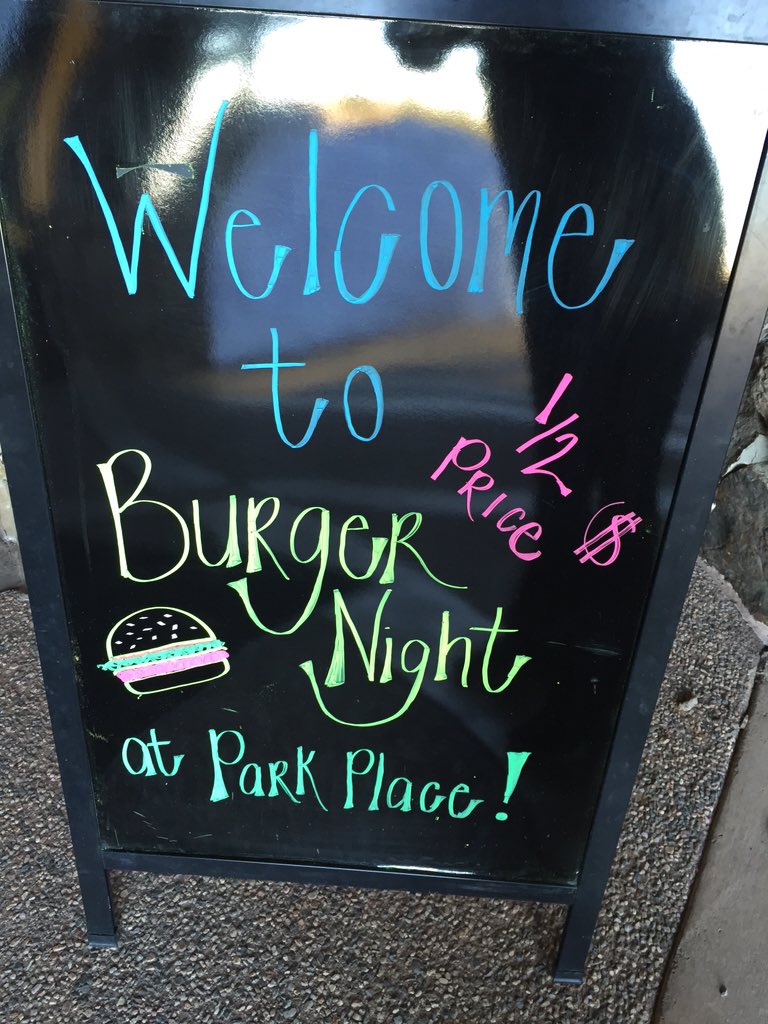 Welcome
to
1/2
PRice $
BuRgeR
Night
at PaRk Place!